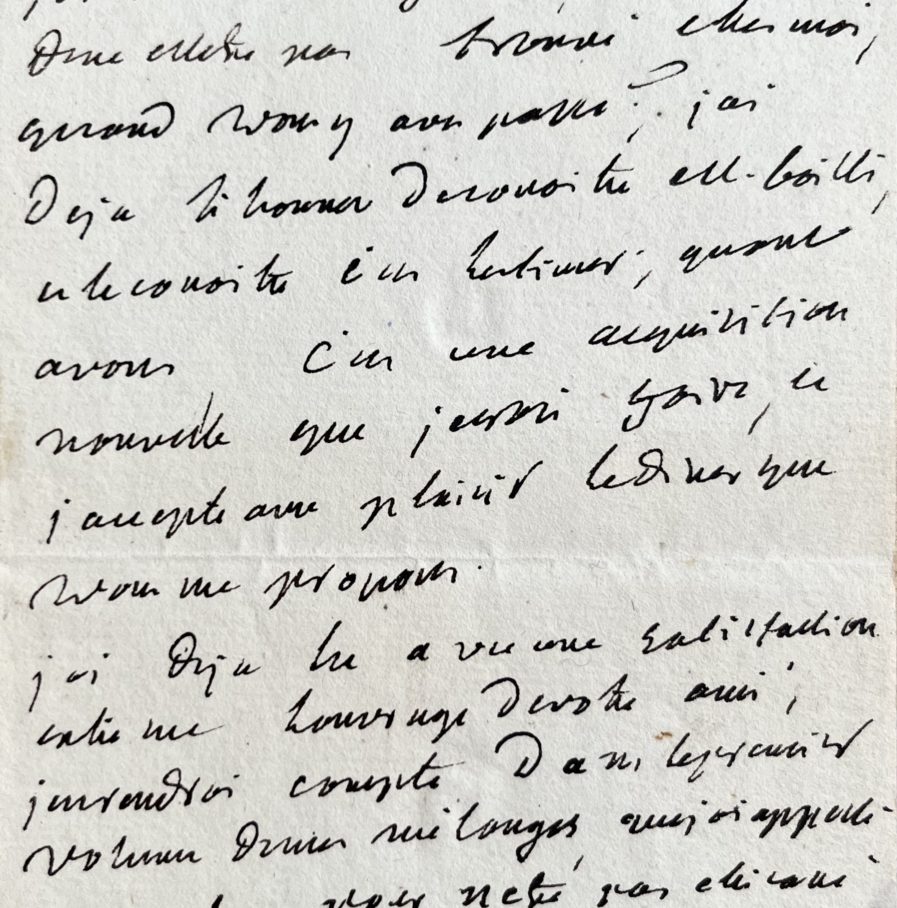 Dene metre pas trouvé chez moi,
quand vous y avez passé; jai
Deja lhonneur Deconoitre bailli,
et leconoitre c'est lestimer; quant
avous c'est une acquisition
nouvelle que jaurai, et
jaccepte avec plaisir lediner que
vous me proposez.
jai Deja lu avec une satisfaction
extreme louvrage Devotre ami;
jenrendrai compte Dans lepremier
volume Demes mélanges, quejai
pour netre pas chicané